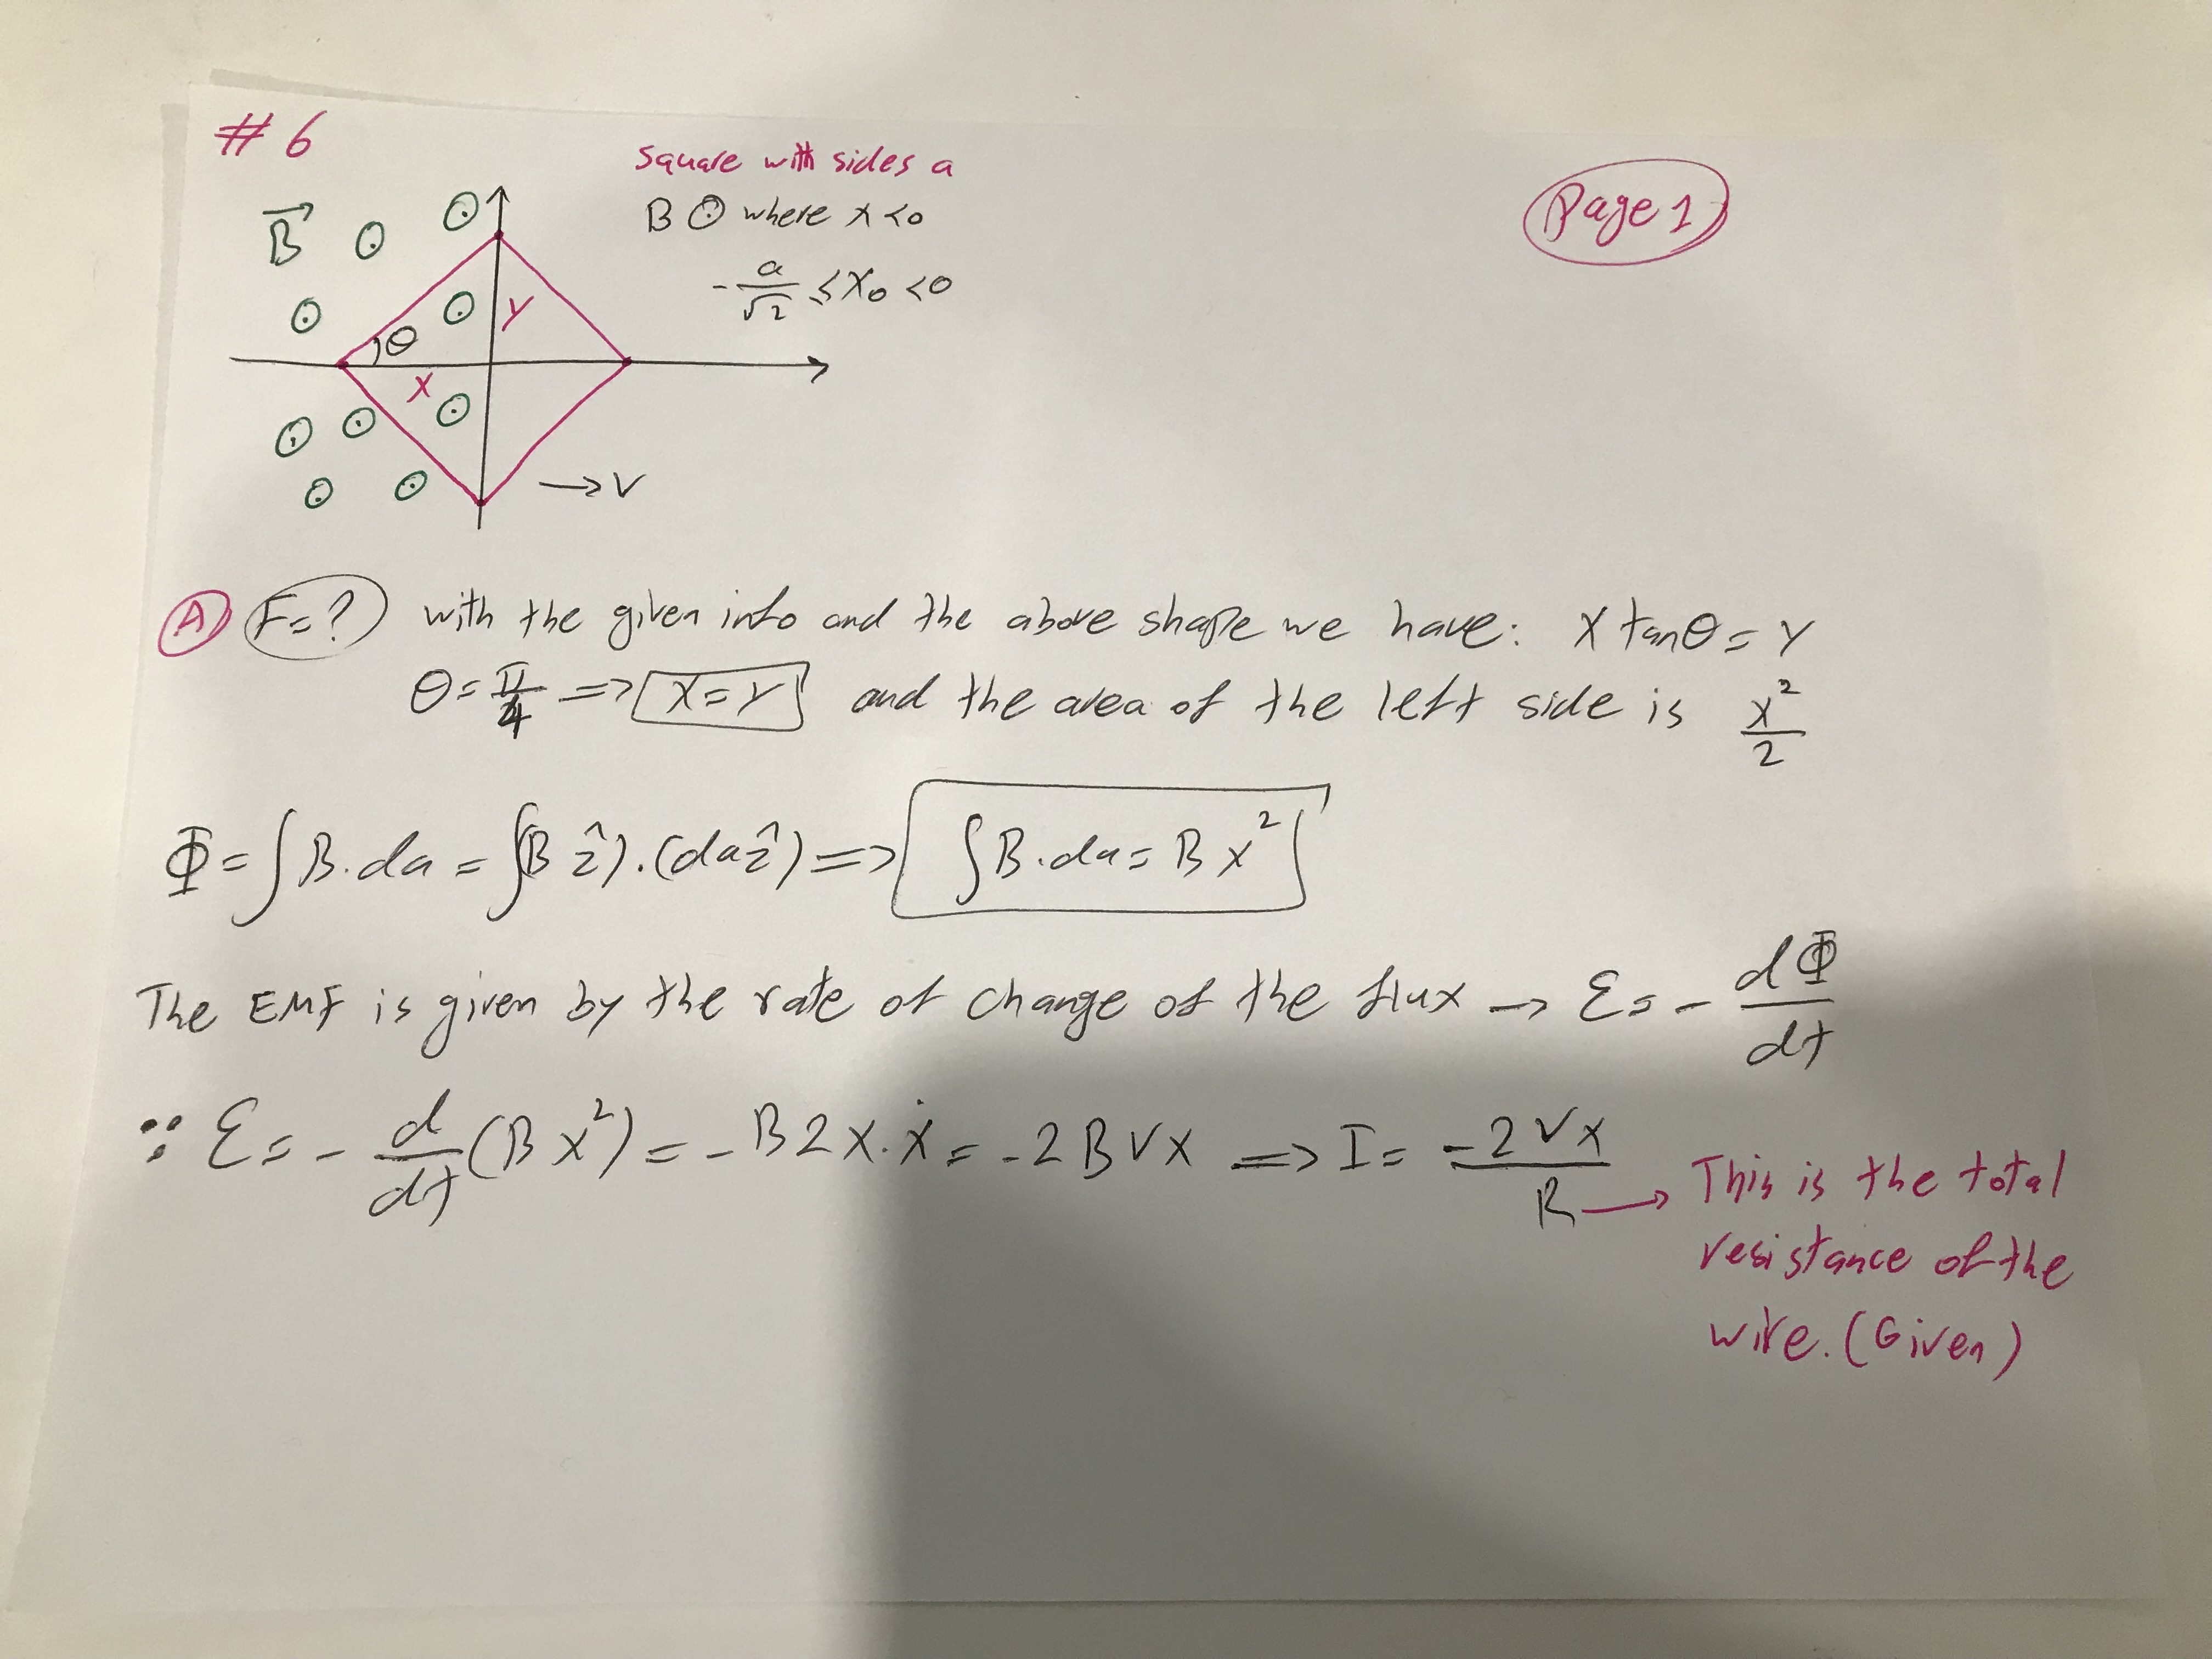 # 6
Page 1
Square with sides a
B ⊙ where x<0
-a/√2 ≤ x₀ <0
B⃗
Y
θ
X
→ V
A F=? with the given info and the above shape we have: X tanθ = Y
θ = π/4 => X=Y and the area of the left side is x²/2
Φ = ∫B.da = ∫(B ẑ).(da ẑ) => ∫B.da = B x²
The EMF is given by the rate of change of the flux → Ɛ = - dΦ/dt
∵ Ɛ = - d/dt (B x²) = - B 2 x.ẋ = - 2 B V X => I = -2Vx/R → This is the total
resistance of the
wire. (Given)